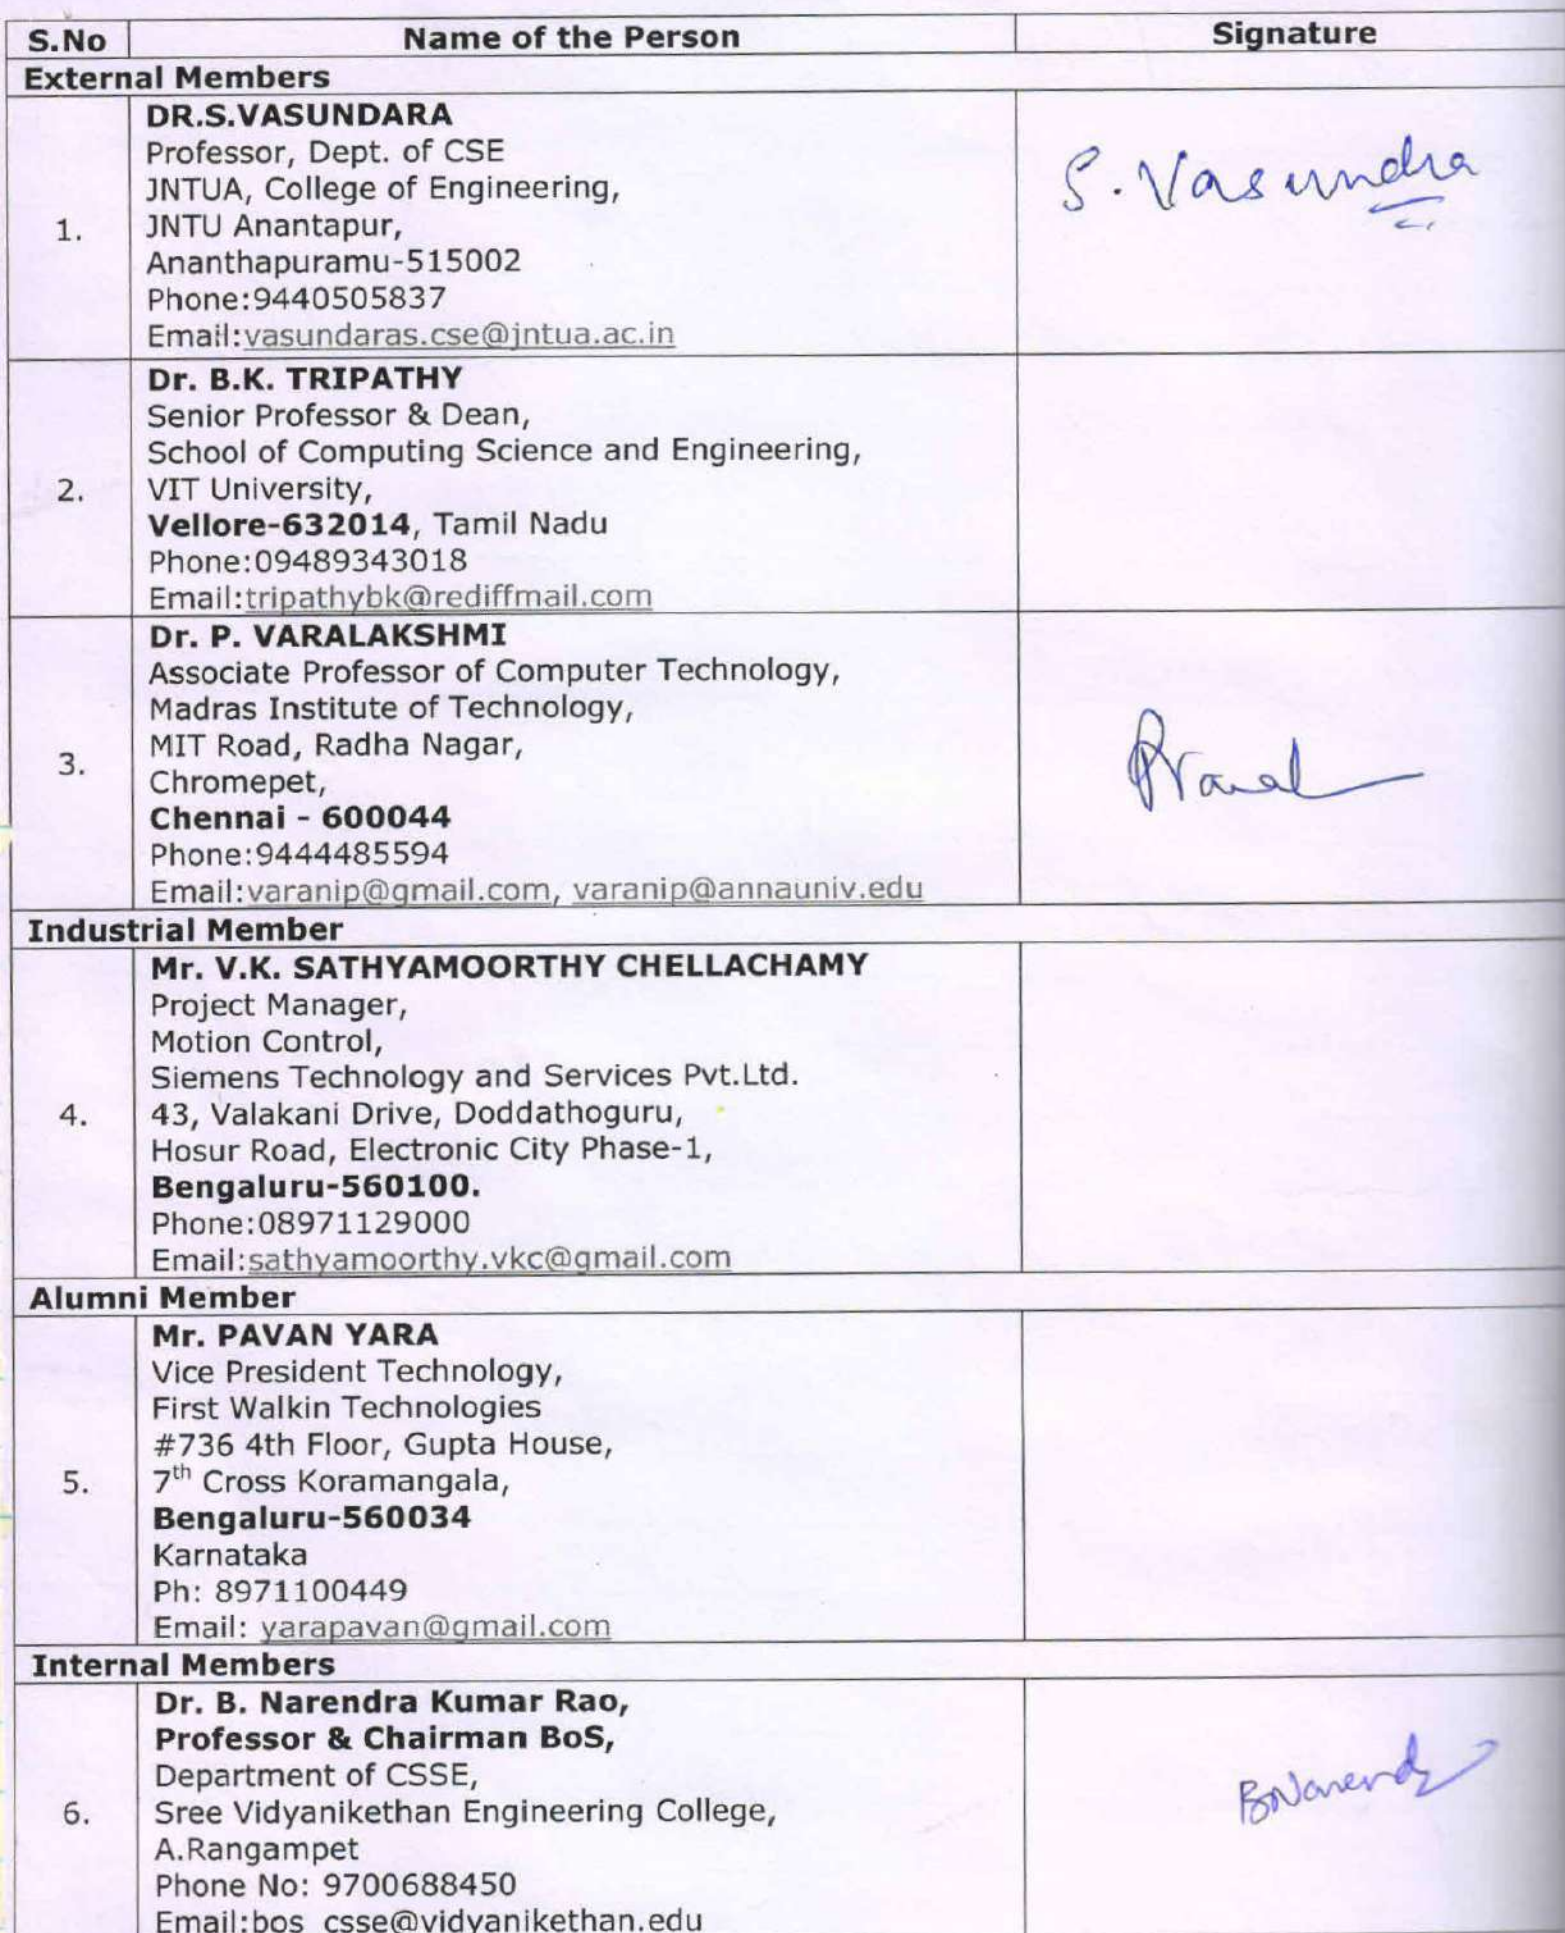 S.No Name of the Person Signature
External Members
DR.S.VASUNDARA
Professor, Dept. of CSE
JNTUA, College of Engineering,
1. JNTU Anantapur,
Ananthapuramu-515002
Phone:9440505837
Email:vasundaras.cse@jntua.ac.in
S. Vasundra
Dr. B.K. TRIPATHY
Senior Professor & Dean,
School of Computing Science and Engineering,
2. VIT University,
Vellore-632014, Tamil Nadu
Phone:09489343018
Email:tripathybk@rediffmail.com
Dr. P. VARALAKSHMI
Associate Professor of Computer Technology,
Madras Institute of Technology,
MIT Road, Radha Nagar,
3. Chromepet,
Chennai - 600044
Phone:9444485594
Email:varanip@gmail.com, varanip@annauniv.edu
Industrial Member
Mr. V.K. SATHYAMOORTHY CHELLACHAMY
Project Manager,
Motion Control,
Siemens Technology and Services Pvt.Ltd.
4. 43, Valakani Drive, Doddathoguru,
Hosur Road, Electronic City Phase-1,
Bengaluru-560100.
Phone:08971129000
Email:sathyamoorthy.vkc@gmail.com
Alumni Member
Mr. PAVAN YARA
Vice President Technology,
First Walkin Technologies
#736 4th Floor, Gupta House,
5. 7th Cross Koramangala,
Bengaluru-560034
Karnataka
Ph: 8971100449
Email: yarapavan@gmail.com
Internal Members
Dr. B. Narendra Kumar Rao,
Professor & Chairman BoS,
Department of CSSE,
6. Sree Vidyanikethan Engineering College,
A.Rangampet
Phone No: 9700688450
Email:bos_csse@vidyanikethan.edu